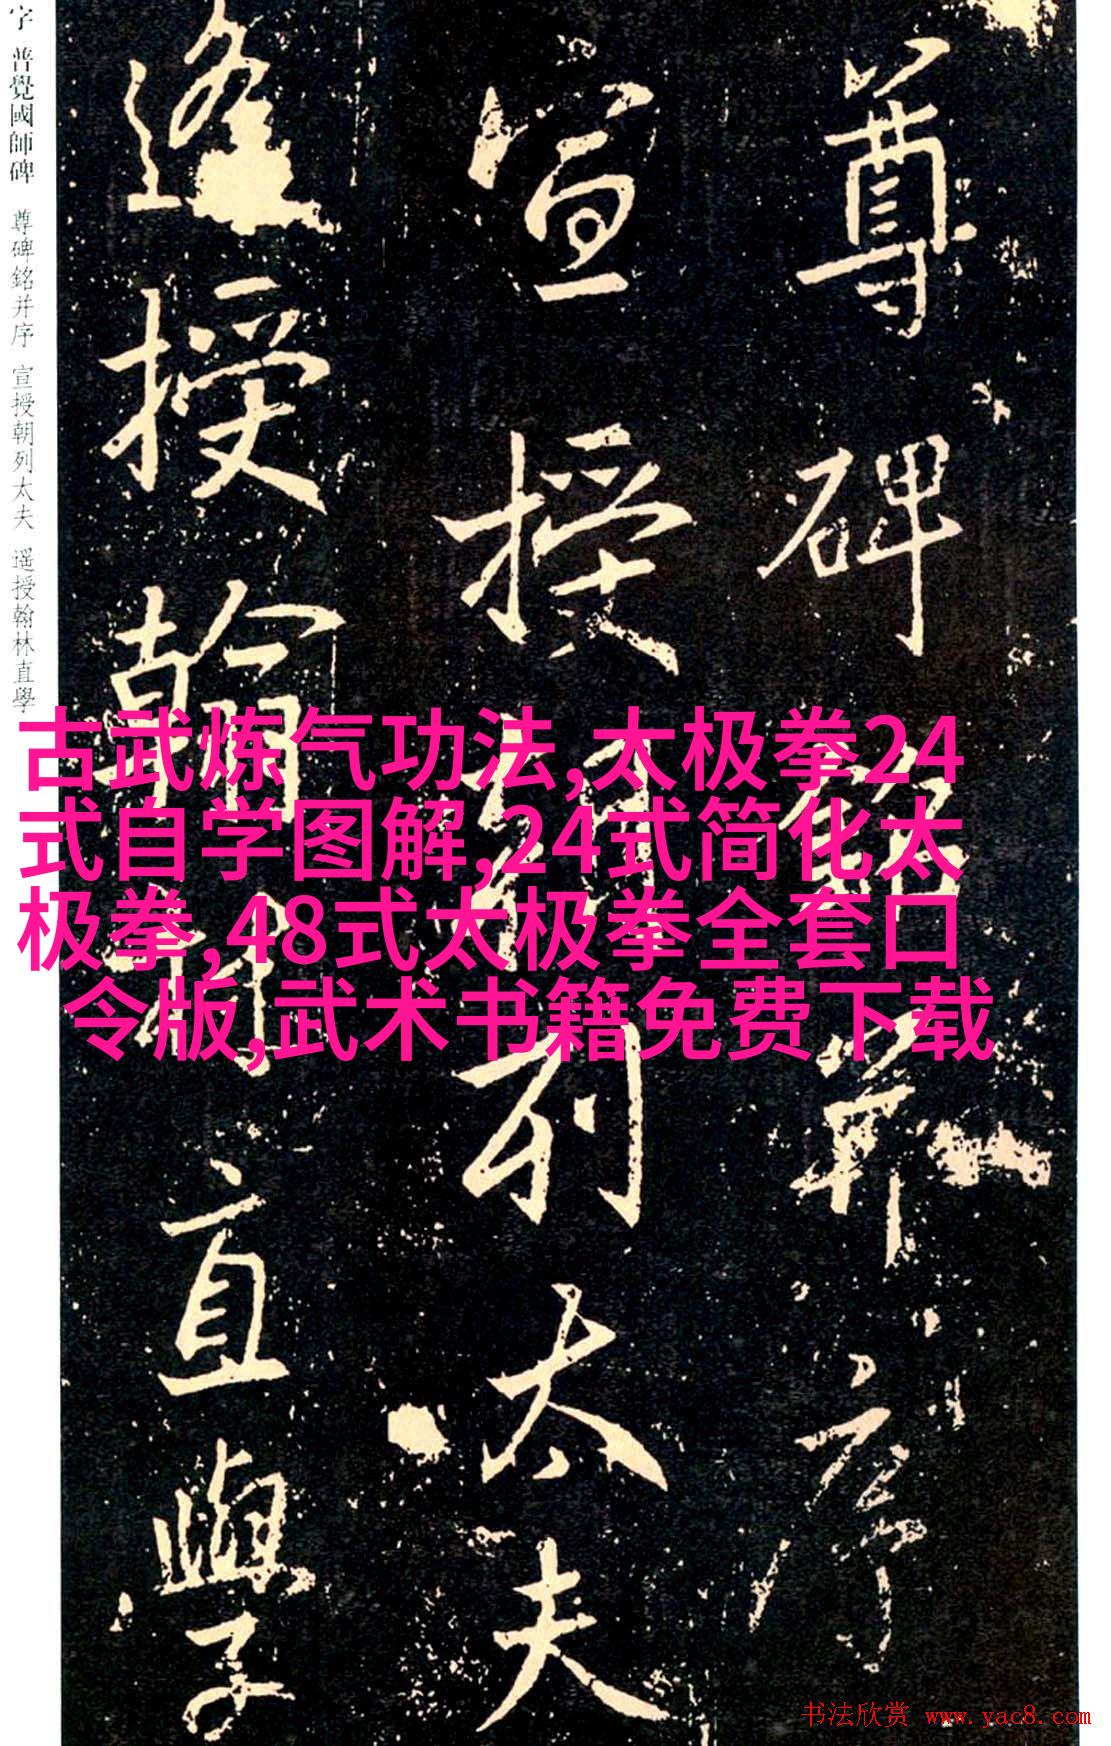 字 普覺國師碑 尊碑銘并序 宣授朝列太夫 遥授翰林直學
尊碑銘并序
宣授朝列太夫
遥授翰林直學
古武炼气功法,太极拳24
式自学图解,24式简化太
极拳,48式太极拳全套口
令版,武术书籍免费下载
书法欣赏 www.yac8.com